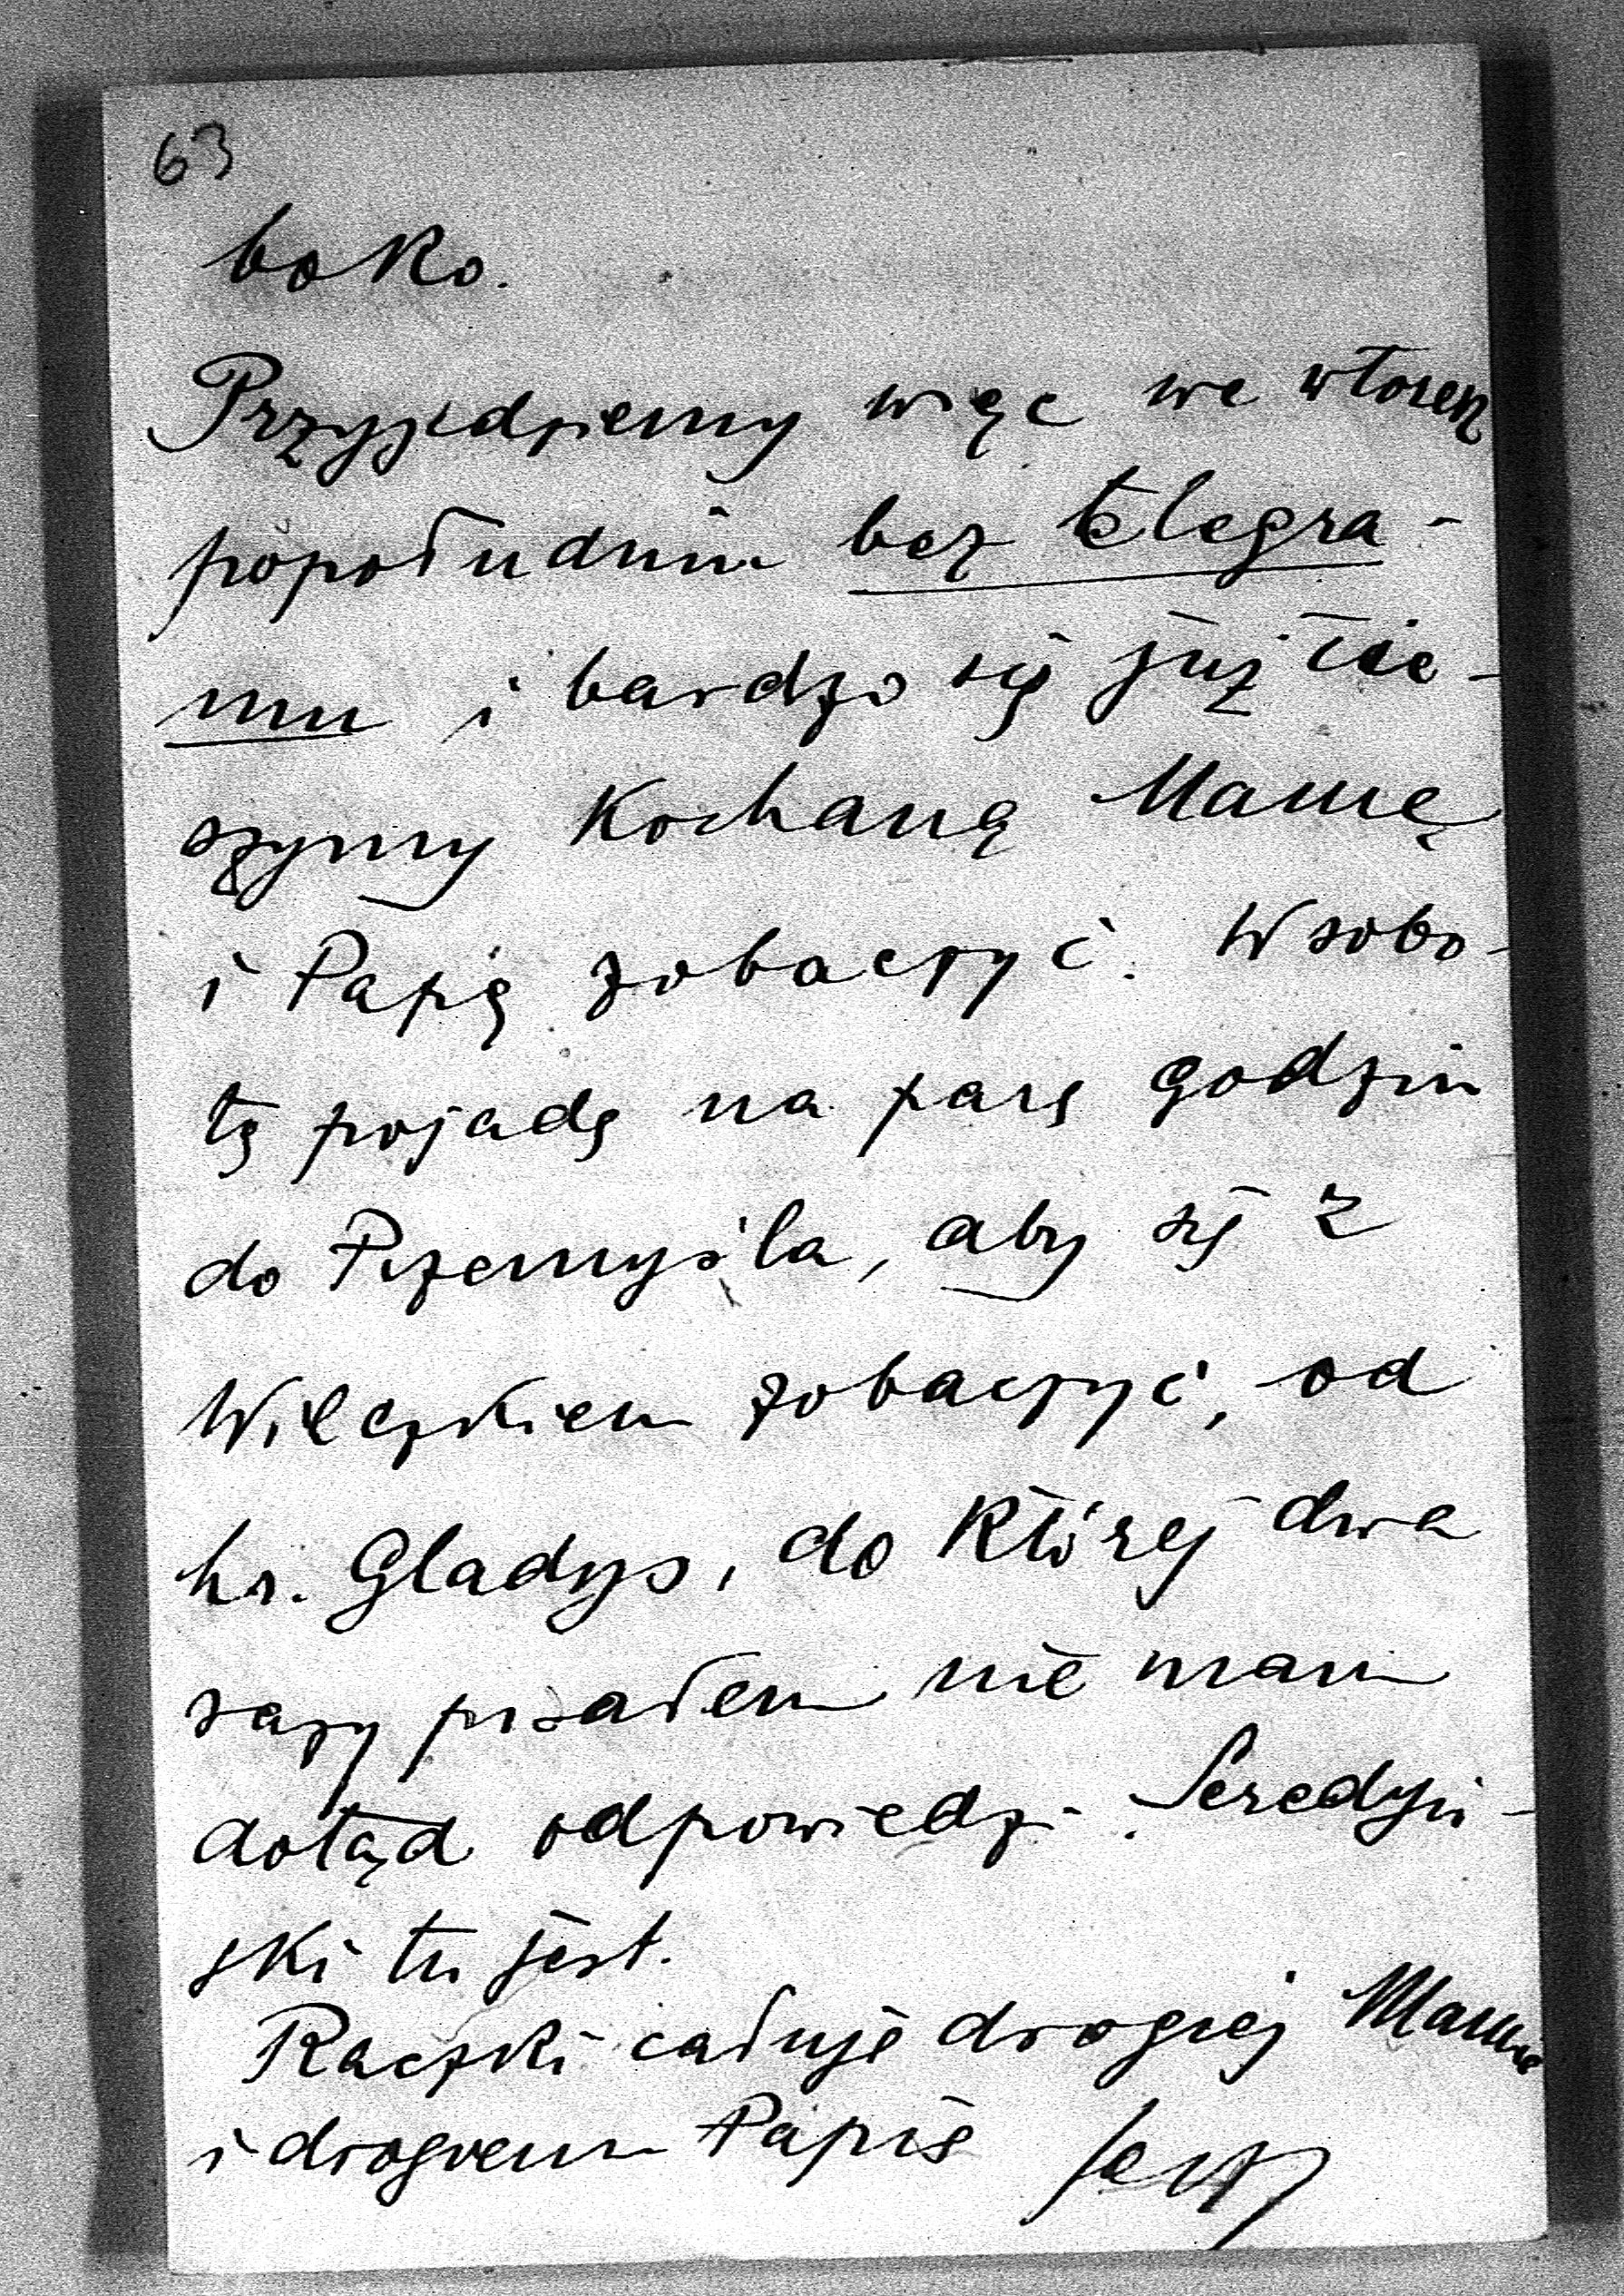 63
boko.
Przyjedziemy więc we wtorek
popołudniu bez telegra-
mu i bardzo się już cie-
szymy Kochaną Mamę
i Papię zobaczyć. W sobo-
tę pojadę na parę godzin
do Przemyśla, aby się z
Wilczkiem zobaczyć, od
hr. Gladys, do Której dwa
razy pisałem nie mam
dotąd odpowiedzi. Seredyń-
ski tu jest.
Raczki całuję drogiej Mamie
i drogiemu Papie